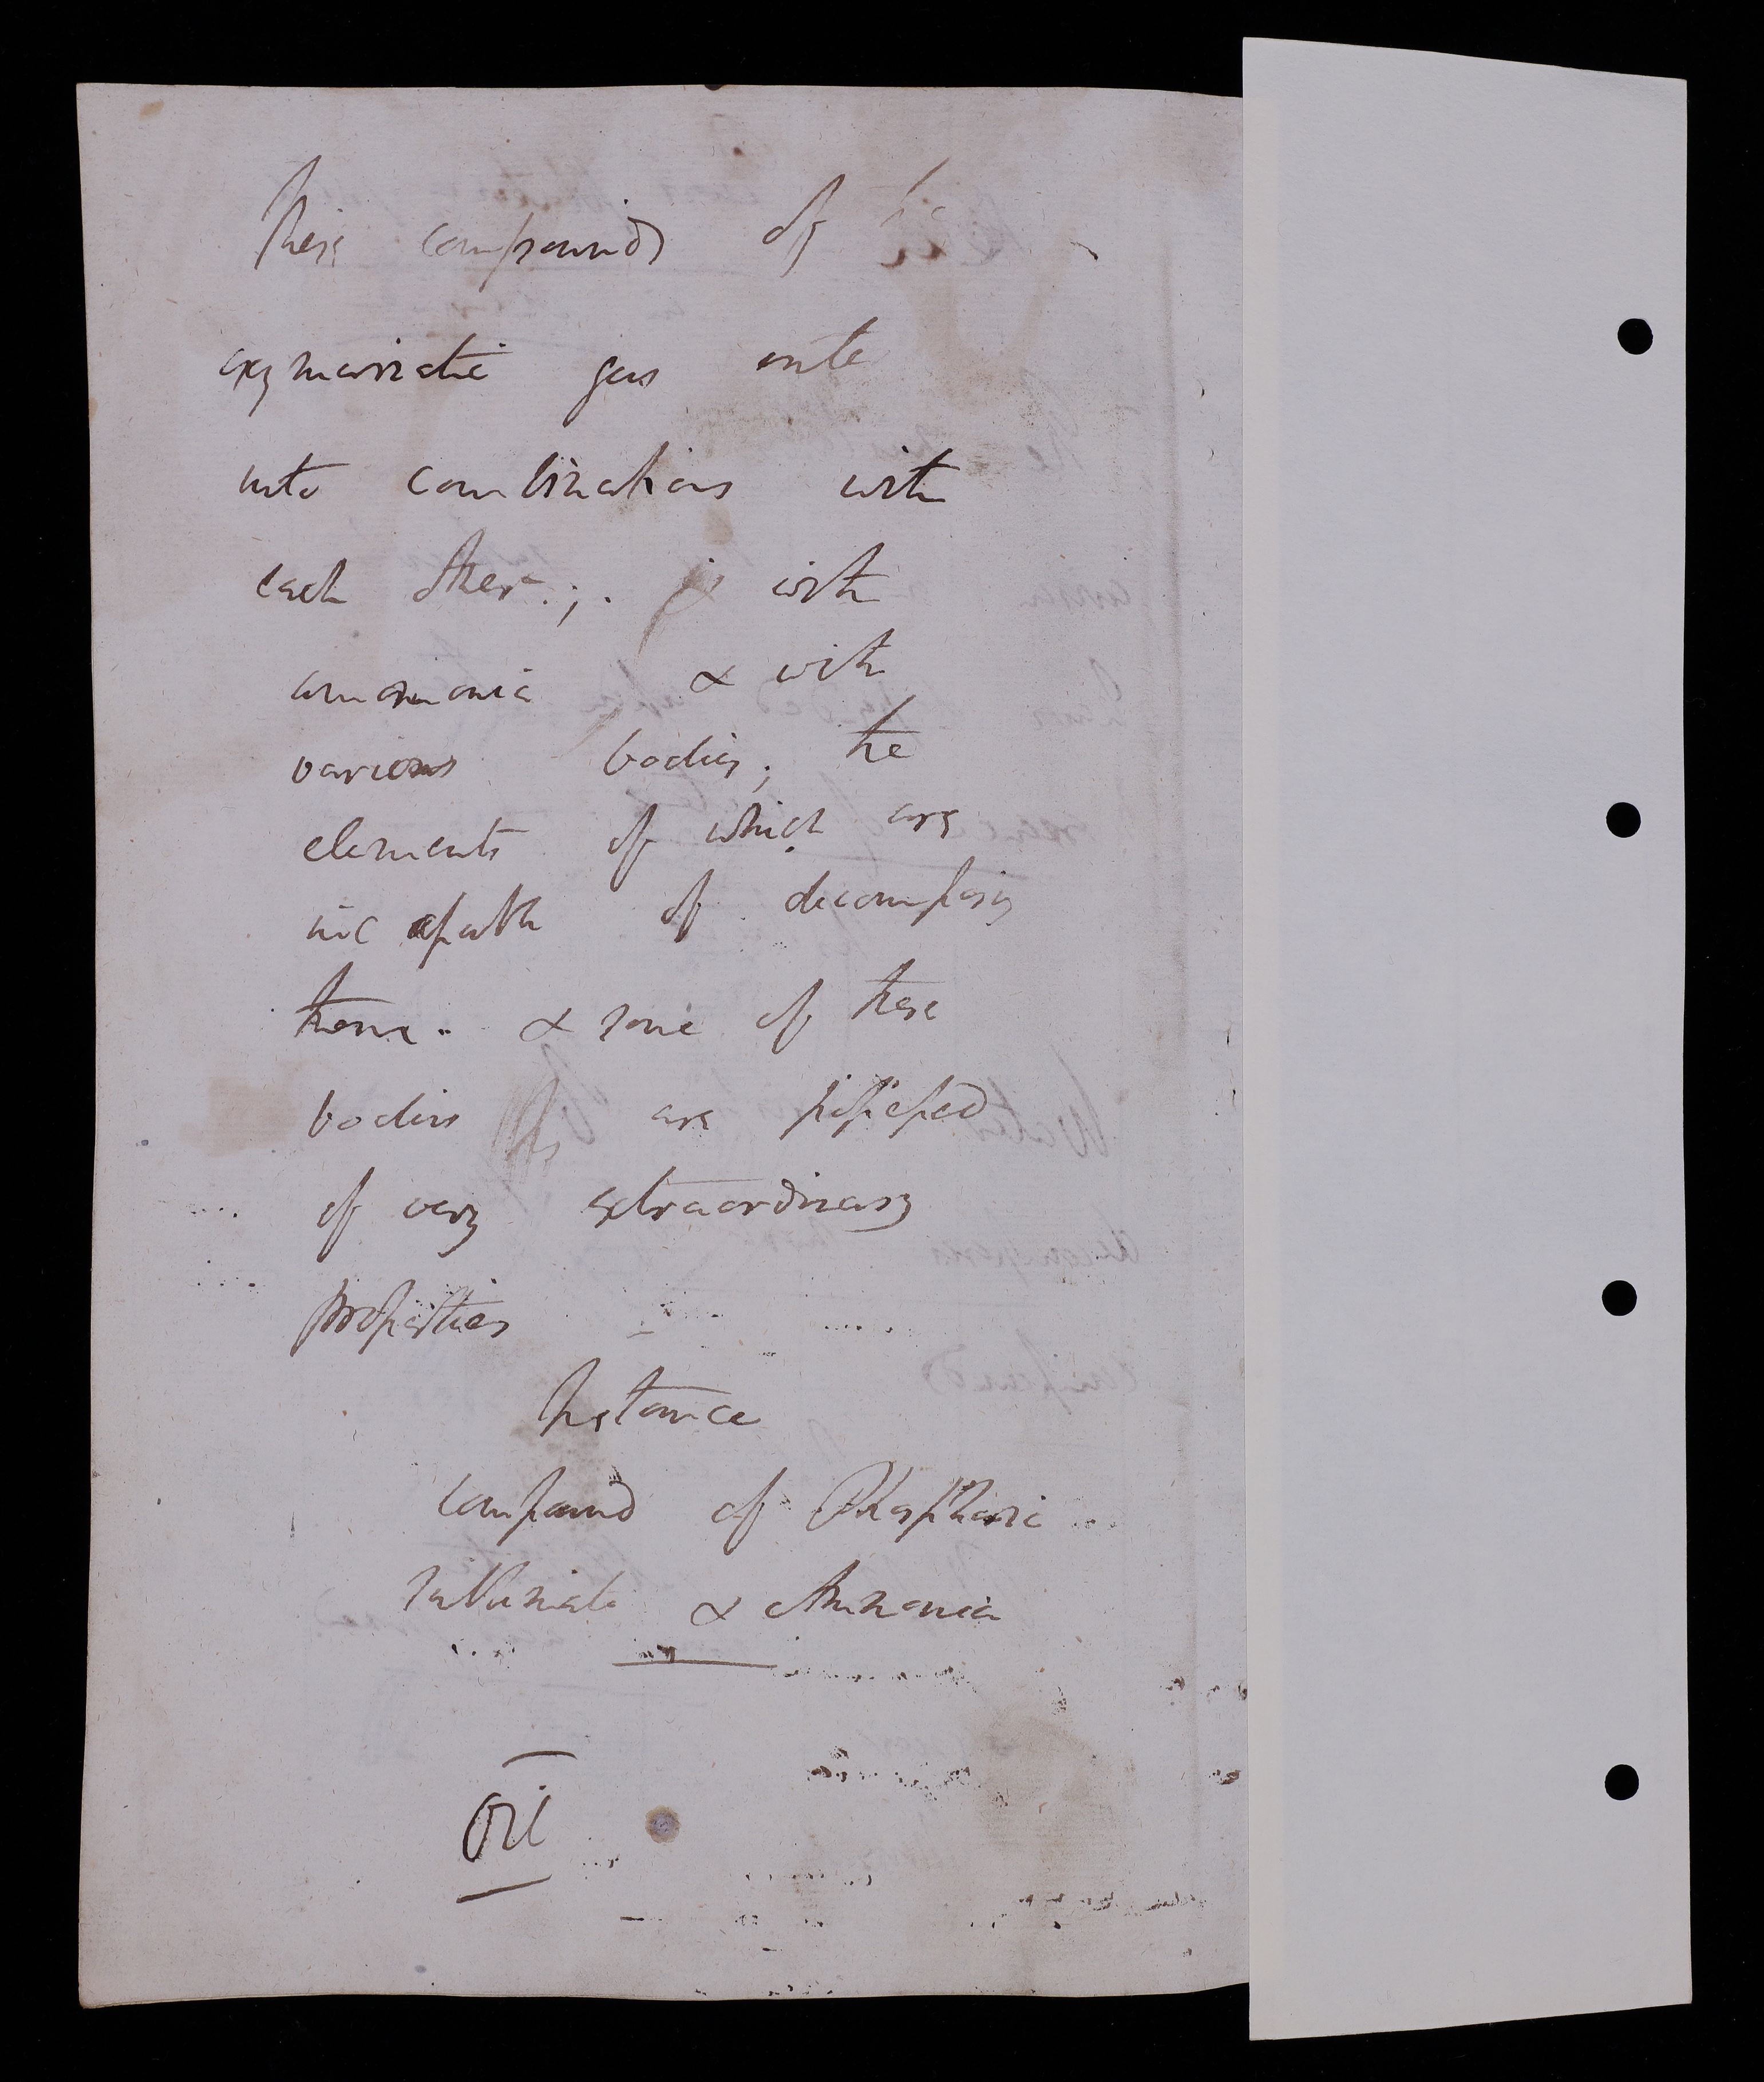 These compounds of the
oxymuriatic gas enter
into combinations with
each other.;. & with
ammonia & with
various bodies; the
elements of which are
incapable of decomposing
them. & some of these
bodies are possessed
of very extraordinary
properties
Instance
compound of Phosphoric
sublimate & Ammonia
Oil